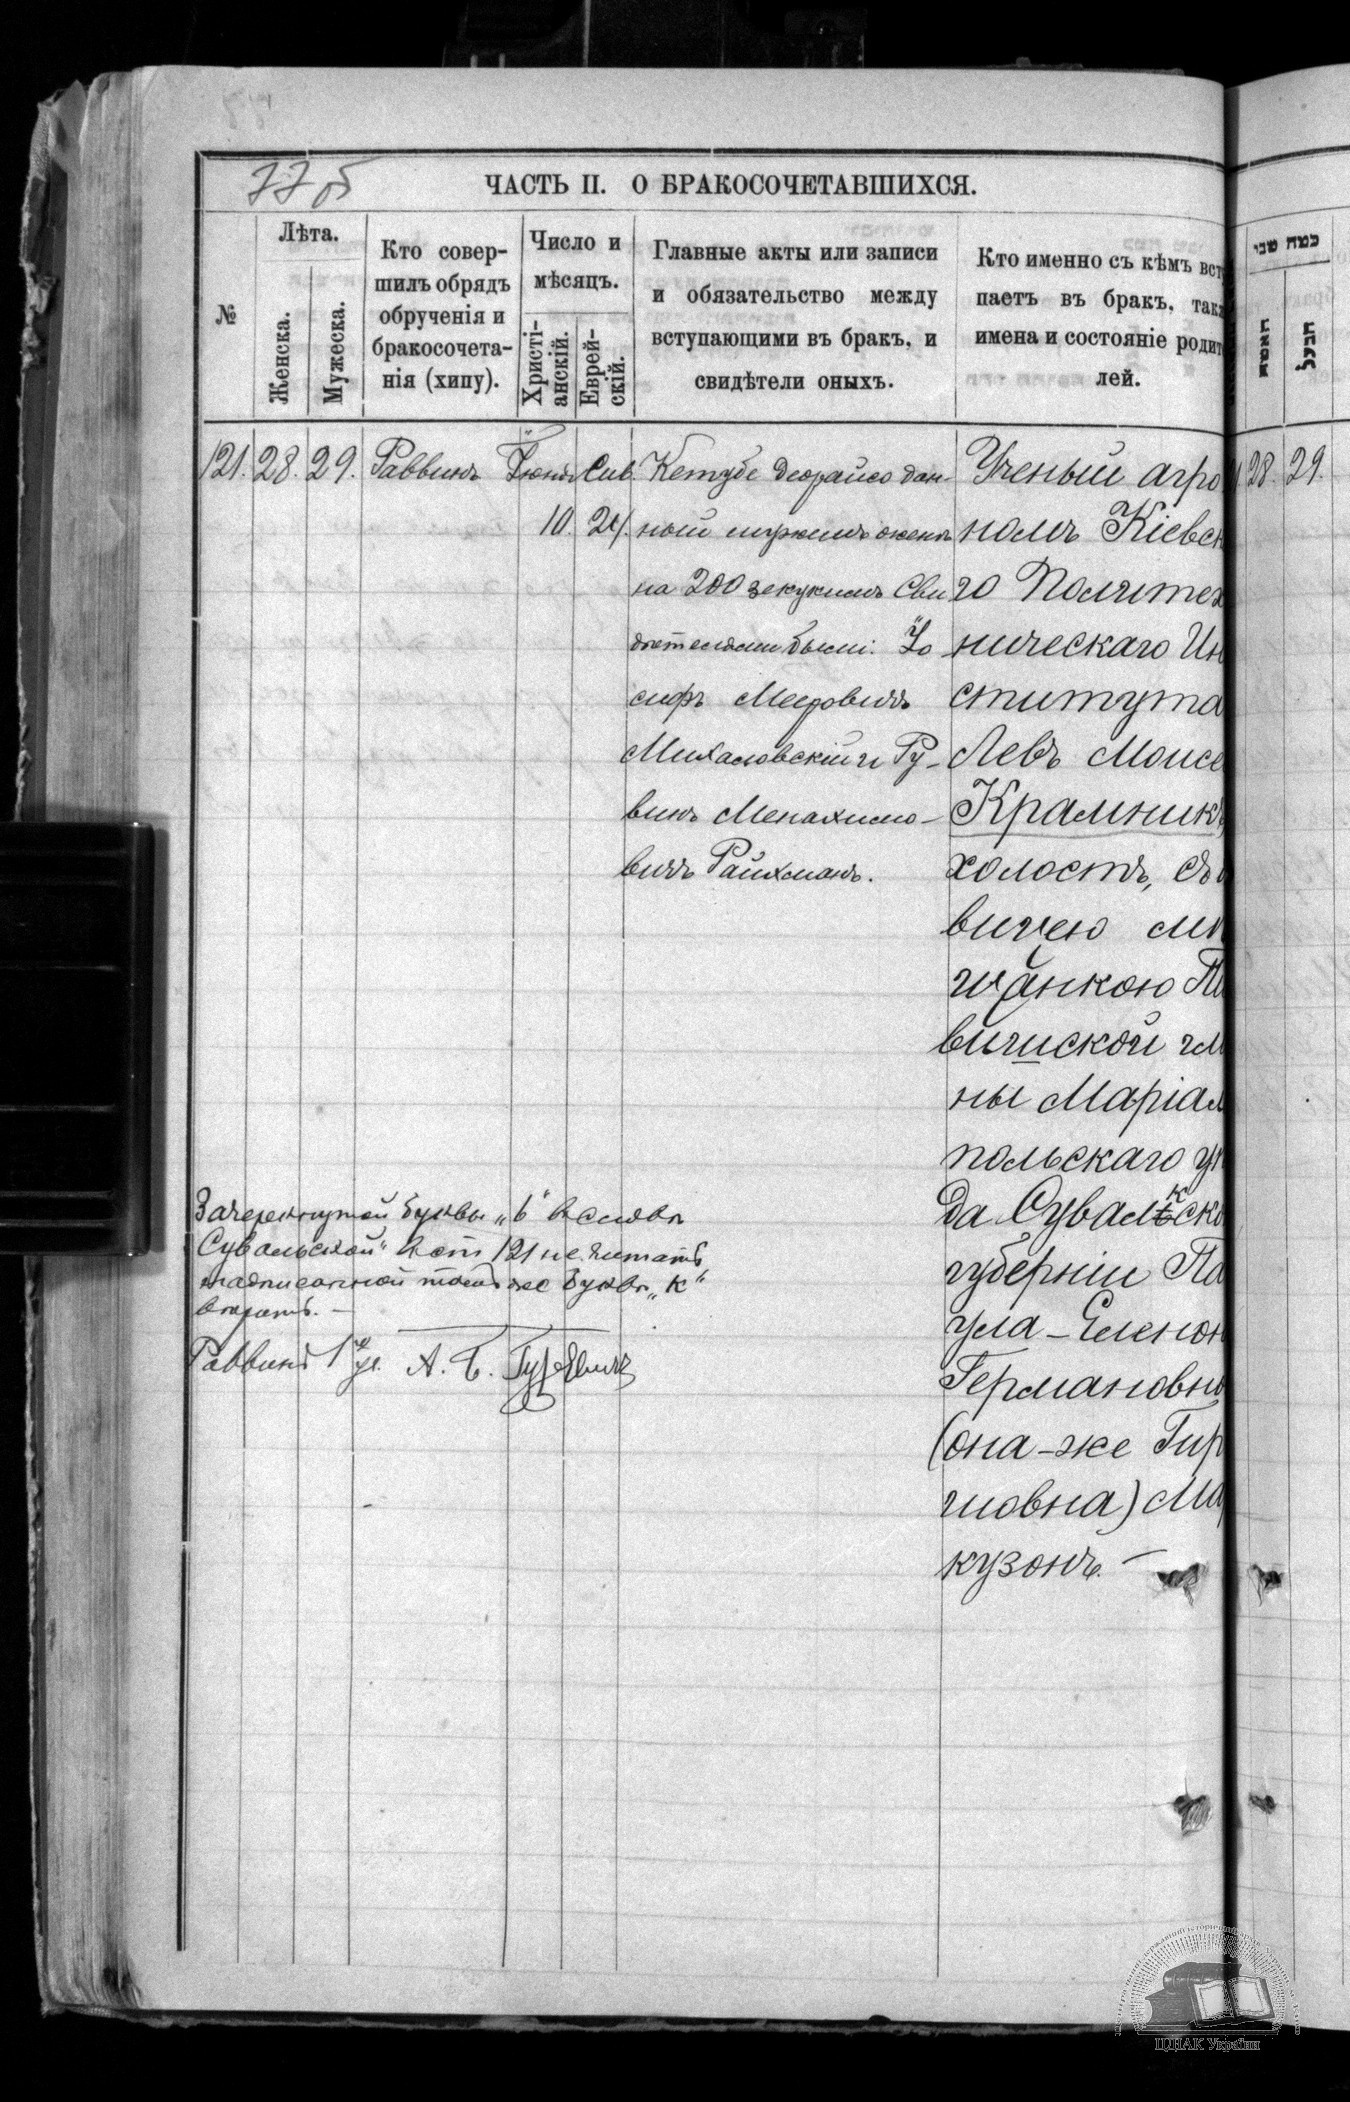 77об
ЧАСТЬ II. О БРАКОСОЧЕТАВШИХСЯ.
№
Лѣта.
Женска.
Мужеска.
Кто совер-
шилъ обрядъ
обрученія и
бракосочета-
нія (хипу).
Число и
мѣсяцъ.
Христі-
анскій.
Еврей-
скій.
Главные акты или записи
и обязательство между
вступающими въ бракъ, и
свидѣтели оныхъ.
Кто именно съ кѣмъ вст
паетъ въ бракъ, такж
имена и состояніе родит
лей.
121. 28. 29. Раввинъ Іюня 10. Сив. 24.
Кетубе деорайсо дан-
ный мужемъ женѣ
на 200 зекукимъ Сви
дѣтелями были: Іо
сифъ Мееровичъ
Михаловскій и Ру-
винъ Менахимо-
вичъ Райхманъ.
Ученый агро
номъ Кіевск
го Политех
ническаго Ин
ститута
Левъ Моисе
Крамникъ,
холостъ, съ
вицею мѣ
щанкою Пи
вишской гми
ны Маріам
польскаго уѣ
да Сувалкско
губерніи Па
ула-Еленон
Германовно
(она-же Гир
шовна) Мар
кузонъ. —
Зачеркнутой буквы „ь" въ словѣ
„Сувальской" въ ст 121 не читать
надписанной тамъ же буквѣ „к"
вѣрить. —
Раввинъ 1го уч. А. Б. Гуревичъ
כמה שני
האשה
הבעל
28. 29.
ЦДІАК України